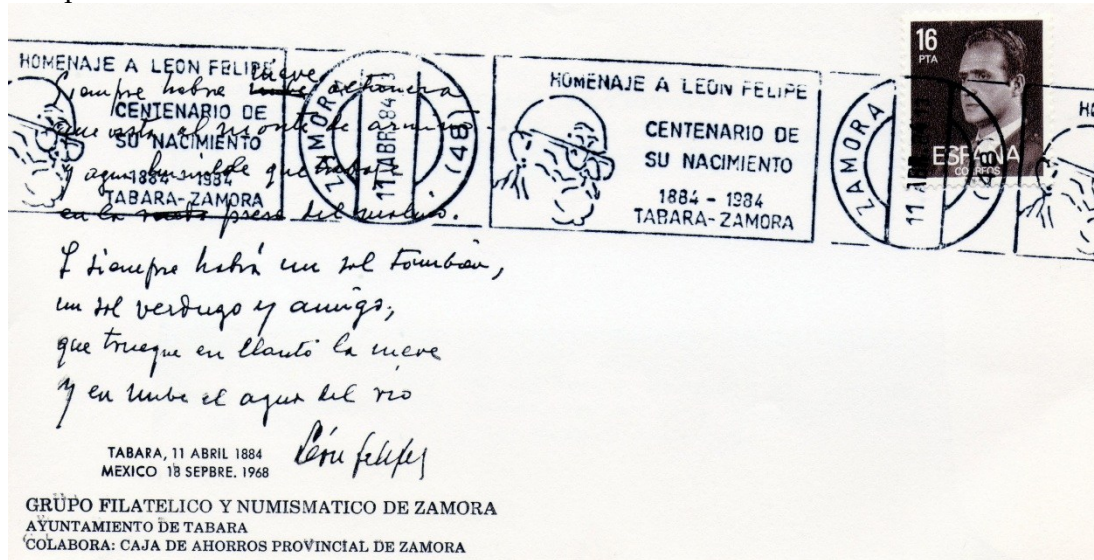 HOMENAJE A LEON FELIPE
CENTENARIO DE
SU NACIMIENTO
1884 - 1984
TABARA-ZAMORA
ZAMORA
11 ABR. 84
(48)
HOMENAJE A LEON FELIPE
CENTENARIO DE
SU NACIMIENTO
1884 - 1984
TABARA-ZAMORA
ZAMORA
11
HO
16
PTA
ESPAÑA
CORREOS
Siempre habrá nieve altanera
que vista al monte de armiño
y agua humilde que trabaje
en la presa del molino.
Y siempre habrá un sol también,
un sol verdugo y amigo,
que trueque en llanto la nieve
y en nube el agua del río
León Felipe
TABARA, 11 ABRIL 1884
MEXICO 18 SEPBRE. 1968
GRUPO FILATELICO Y NUMISMATICO DE ZAMORA
AYUNTAMIENTO DE TABARA
COLABORA: CAJA DE AHORROS PROVINCIAL DE ZAMORA